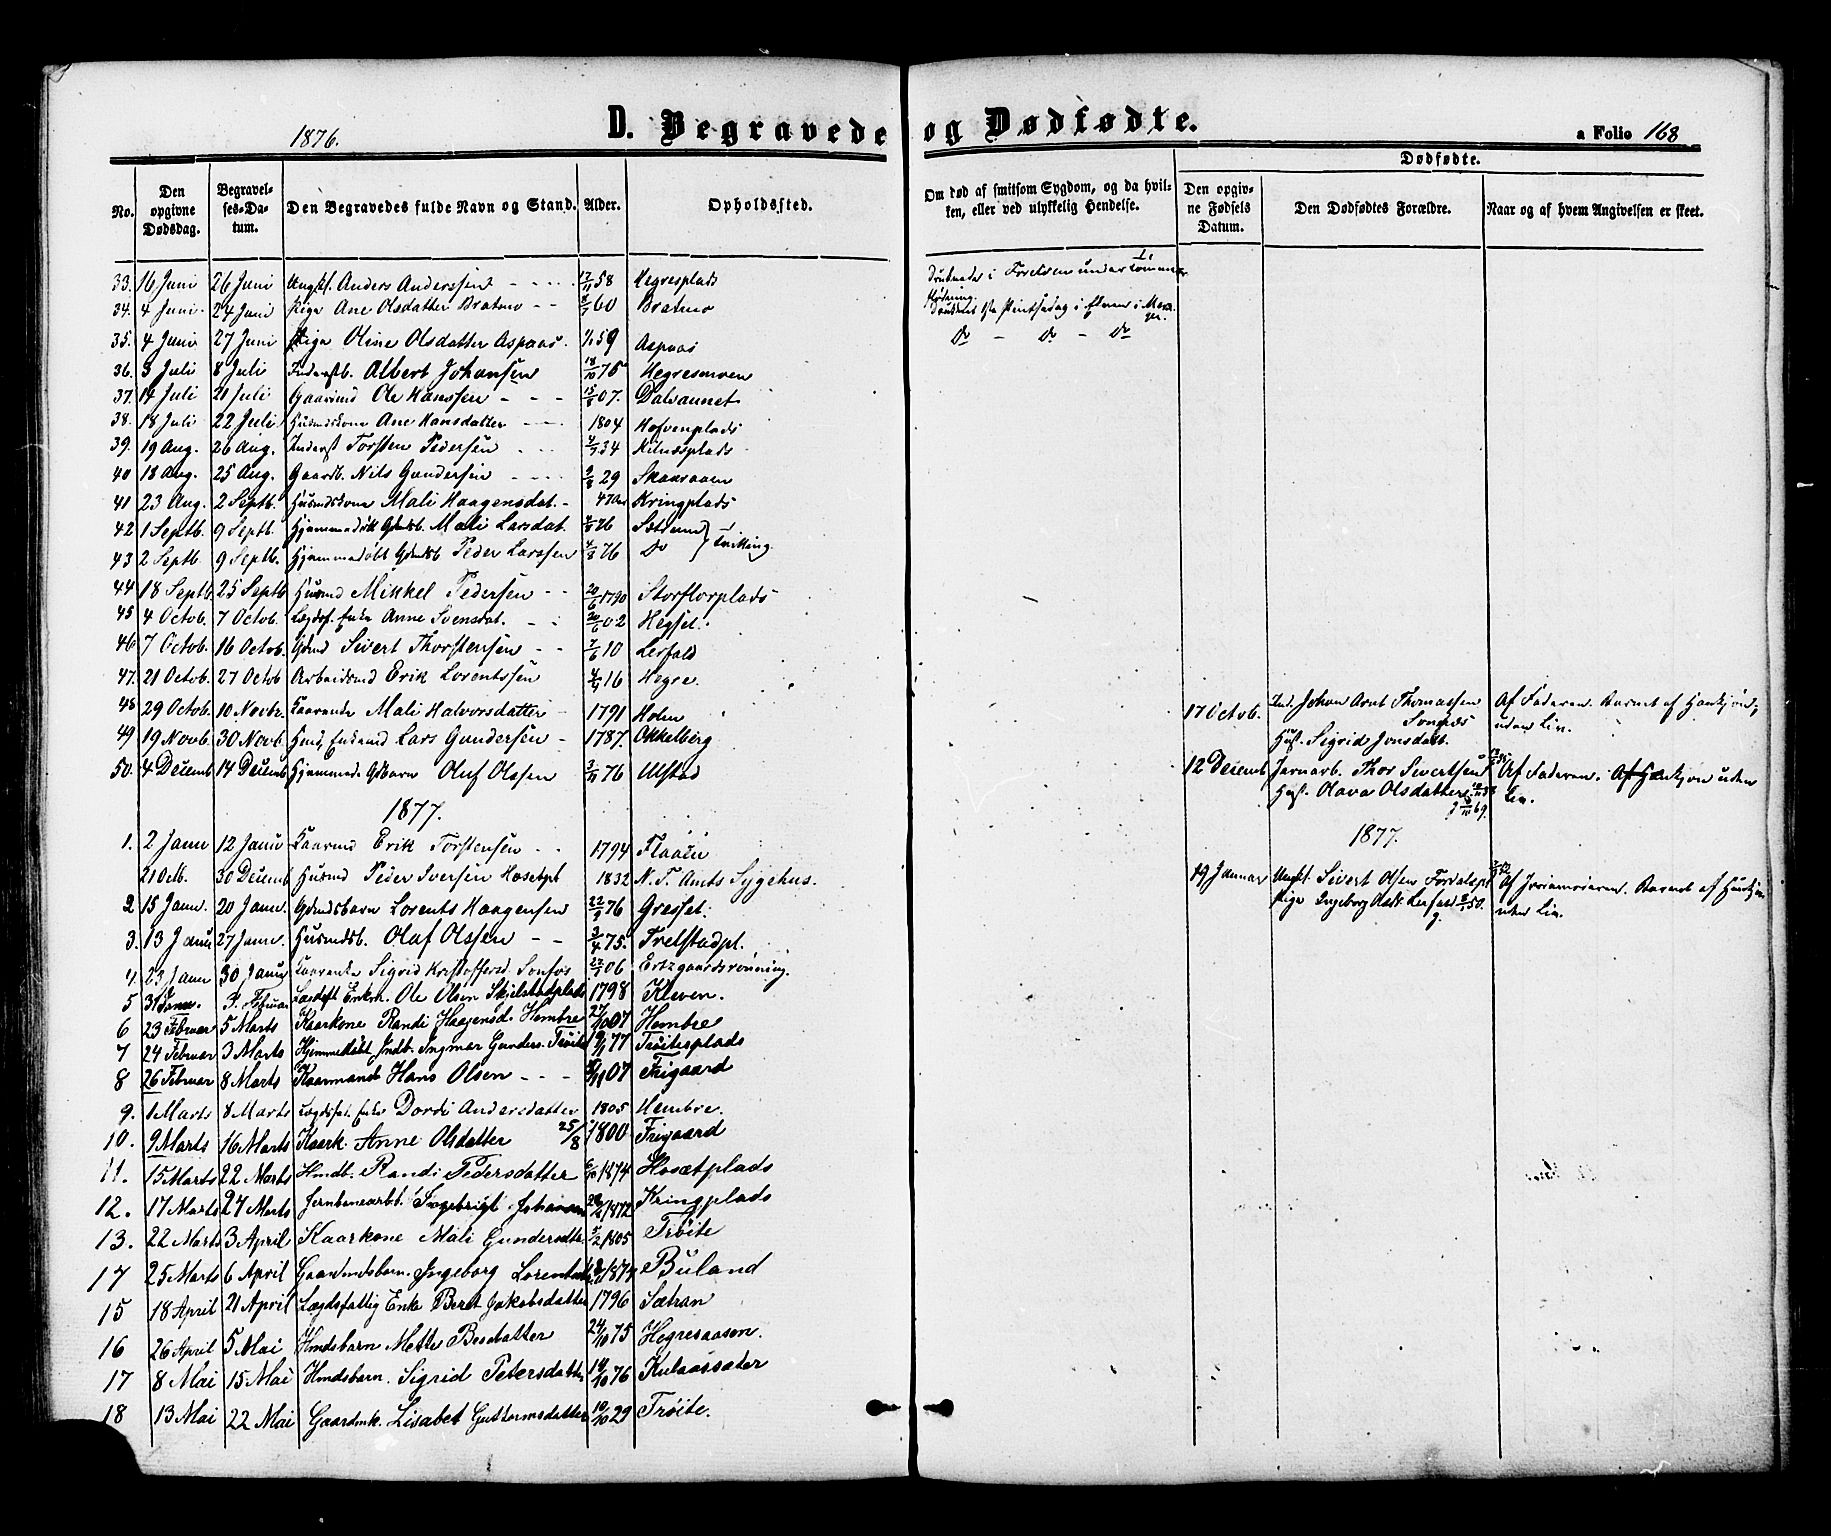 1876.
D. Begravede og Dødfødte.
a Folio 168
Dødfødte.
No.
Den opgivne Dødsdag.
Begravelses-Datum.
Den Begravedes fulde Navn og Stand.
Alder.
Opholdssted.
Om død af smitsom Sygdom, og da hvilken, eller ved ulykkelig Hendelse.
Den opgivne Fødsels Datum.
Den Dødfødtes Forældre.
Naar og af hvem Angivelsen er skeet.
33. 16 Juni 26 Juni Ungkl. Anders Anderssen 58 Hegresplads
34. 4 Juni 24 Juni Pige Ane Olsdatter Bratmo 60 Bratmo
35. 4 Juni 27 Juni Pige Oline Olsdatter Aspaas 59 Aspaas Do - Do - Do
36. 3 Juli 8 Juli Albert Johansen 18/10 75 Hegresmoen
37. 14 Juli 21 Juli Gaardmd Ole Hanssen 07. Dalvannet
38. 18 Juli 22 Juli Husmdskone Ane Hansdatter 1804 Hofvenplads
39. 19 Aug. 26 Aug. Inderst Torsten Pedersen 34
40 18 Aug. 25 Aug. Gaardb. Nils Gundersen 29
41 23 Aug. 2 Septb. Husmdskone Mali Haagensdat. 47 Aar Kringplads
42 1 Septb. 9 Septb. Hjemmedøbt Mali Larsdat. 76 Sætran
43 2 Septb 9 Septb. Hjemmedøbt Peder Larssen 4/8 76 Do Tvilling.
44 18 Septb 25 Septb Husmd Mikkel Pedersen 20/6 1790 Storflorplads
45 4 Octob. 7 Octob. Lægdsf. Enke Anne Svensdat. 20/6 02 Hegset.
46 7 Octob. 16 Octob. Gdmd Sivert Thorstensen 7/6 10 Lerfald
47. 21 Octob. 27 Octob Arbeidsmd Erik Lorentssen 16 Hegre.
48 29 Octob. 10 Novbr. Kaarenke Mali Halvorsdatter 1791 Holen
17 Octob. Ind. Johan Arnt Thomassen
Hust. Sigrid Jonsdatt.
Af Faderen. Barnet af Hankjøn, uden Liv.
49 19 Novb. 30 Novb. Lars Gundersen 1787. Okkelberg
50. 4 Decemb 14 Decemb Hjemmed. Gdbarn Oluf Olssen 3/11 76 Ulstad
12 Decemb Jernarb. Thor Sivertsen
Hust. Olava Olsdatter
Af Faderen. Hankjøn uden Liv.
1877.
1. 2 Janu 12 Janu Kaarmd Erik Torstensen 1794 Flaaen
21 Octb. 30 Decemb Husmd Peder Iversen Hosetpl 1832 N. T. Amts Sygehus.
2 15 Janu. 20 Janu. Gdmdsbarn Lorents Haagensen 22/9 76 Gresset.
3. 13 Janu 27 Janu. Husmdsb. Olaf Olssen 3/4 75. Trelstadpl.
4. 23 Janu 30 Janu Kaarenke Sigrid Kristoffersd. Sonfos 06 Ertzgaardsrønning.
1877.
19 Januar Ungkl. Sivert Olsen
Pige Ingeborg Olsdt. Lerfald
Af Jordmoderen. Barnet af Hunkjøn uden Liv.
5 31 Janu. Februar Lægdslft Enkm. Ole Olsen Skjelstadplads 1798 Kleven.
6 23 Februar 5 Marts Kaarkone Randi Haagensd. Hembre 27/10 07 Hembre
7 24 Februar 3 Marts Hjemmedøbt Indb. Ingmar Gunders. Trøite 77 Trøitesplads
8 26 Februar 8 Marts Kaarmand Hans Olsen 07 Frigaard
9. 1 Marts 8 Marts Lægdsf. Enke Dordi Andersdatter 1805 Hembre.
10. 9 Marts 16 Marts Kaark. Anne Olsdatter 25/8 1800 Frigaard
11. 15 Marts 22 Marts Hmdb. Randi Pedersdatter 1874 Hosætplads
12. 17 Marts 27 Marts Jernbanearbt. Ingebrigt Johansen 1872 Kringplads
13. 22 Marts 3 April Kaarkone Mali Gundersdtr 1805 Trøite
17 25 Marts 6 April Gaardmdsbarn Ingeborg 1874 Buland
15 18 April 21 April Lægdsfattig Enke Beret Jakobsdatter 1796 Sætran
16 26 April 5 Mai Hmdsbarn Mette 24/10 75 Hegresaasen.
17 8 Mai 15 Mai Hmdsbarn. Sigrid Petersdatter 14/10 76 Kulaassæter
18 13 Mai 22 Mai Gaardmk. Lisabet Guttormsdatter 10/10 29 Trøite.